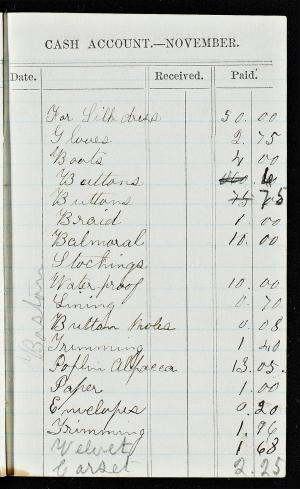 CASH ACCOUNT.—NOVEMBER.
Date. Received. Paid.
For Silk dress 50.00
Gloves 2.75
Boots 4.00
Buttons
Buttons 75
Braid 1.00
Balmoral 10.00
Stockings
Water proof 10.00
Lining 0.70
Button holes 0.08
Trimming 1.40
Poplin Alpacca 13.05.
Paper 1.00
Envelopes 0.20
Trimming 1.96
Velvet 1.68
Corset 2.25
Boston